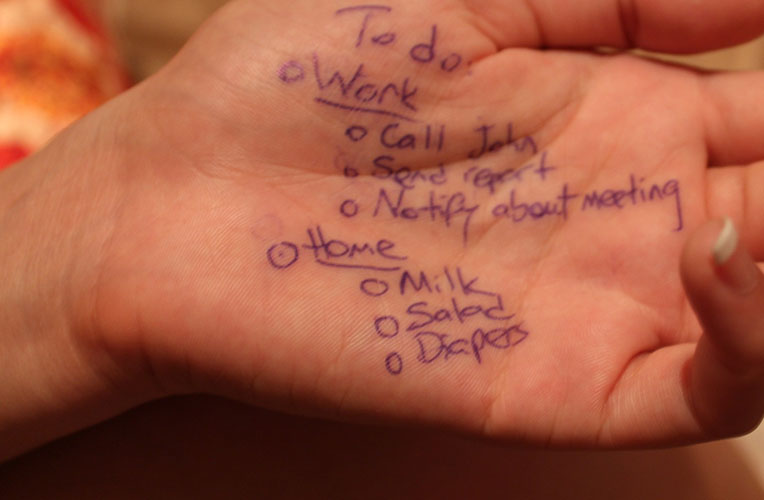 To do:
Work
Call John
Send report
Notify about meeting
Home
Milk
Salad
Diapers